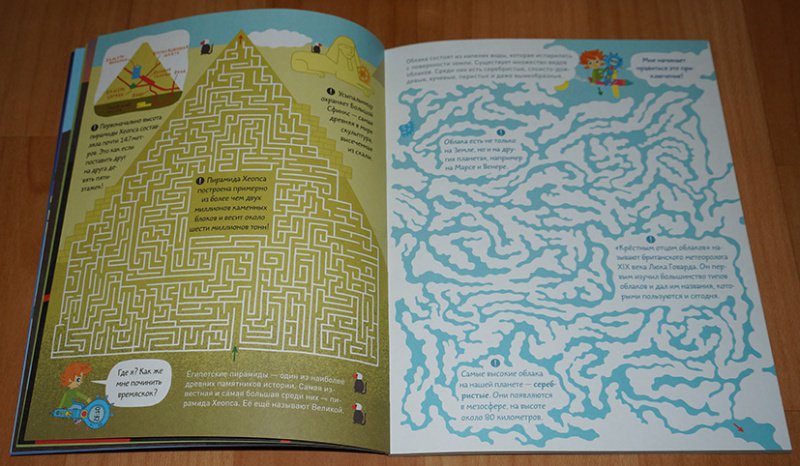 Первоначально высота
пирамиды Хеопса состав-
ляла почти 147 мет-
ров. Это как если
поставить друг
на друга де-
вять пяти-
этажек!
Усыпальницу
охраняет Большой
Сфинкс — самая
древняя в мире
скульптура,
высеченная
из скалы.
Пирамида Хеопса
построена примерно
из более чем двух
миллионов каменных
блоков и весит около
шести миллионов тонн!
Где я? Как же
мне починить
времяскок?
Египетские пирамиды — один из наиболее
древних памятников истории. Самая из-
вестная и самая большая среди них — пи-
рамида Хеопса. Её ещё называют Великой.
Облака состоят из капелек воды, которая испарилась
с поверхности земли. Существует множество видов
облаков. Среди них есть серебристые, слоисто-дож-
девые, кучевые, перистые и даже вымеобразные.
Мне начинает
нравиться это при-
ключение!
Облака есть не только
на Земле, но и на дру-
гих планетах, например
на Марсе и Венере.
«Крёстным отцом облаков» на-
зывают британского метеоролога
XIX века Люка Говарда. Он пер-
вым изучил большинство типов
облаков и дал им названия, кото-
рыми пользуются и сегодня.
Самые высокие облака
на нашей планете — сереб-
ристые. Они появляются
в мезосфере, на высоте
около 80 километров.